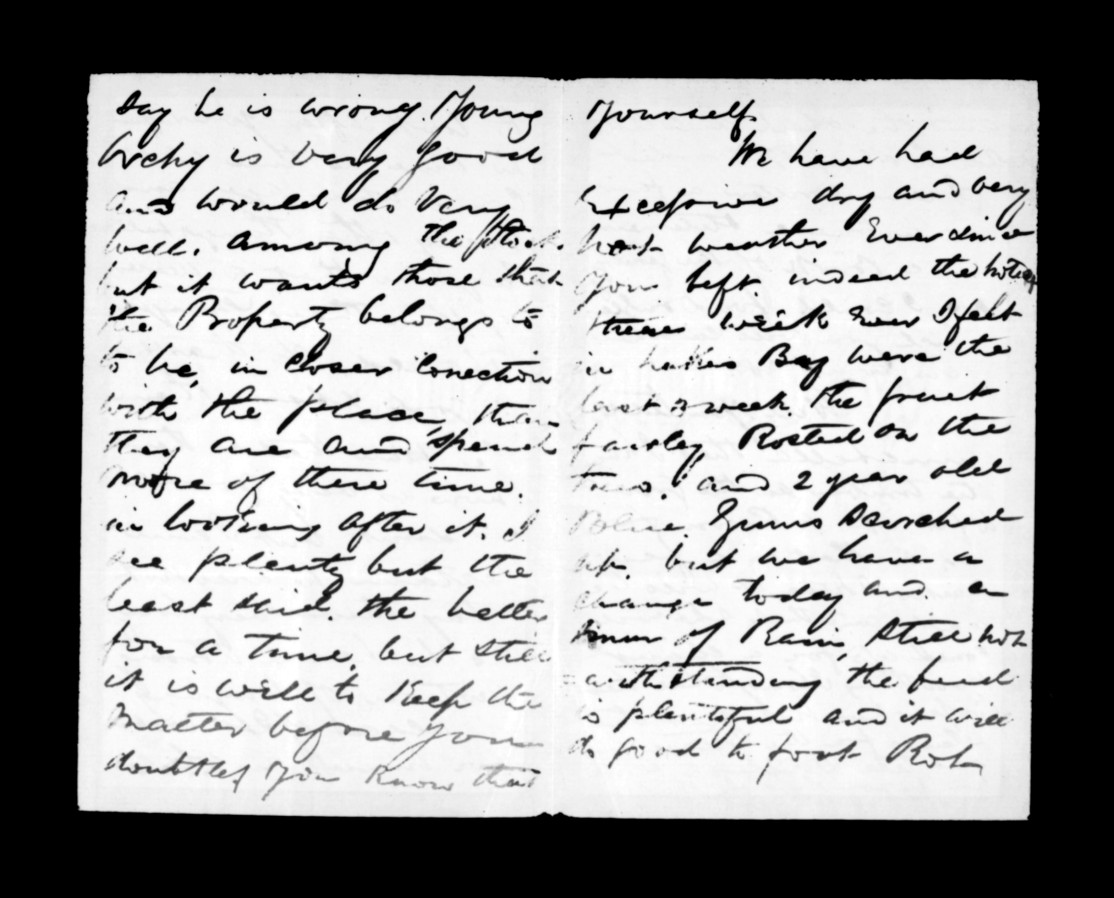 say he is wrong. Young
Archy is very good
and would do very
well. among the Stock.
but it wants those that
the Property belongs to
to be, in closer Conection
with the place, than
they are and spend
more of there time.
in looking after it. I
see plenty but the
least said. the better
for a time, but still
it is well to Keep the
matter before you
doubtless you Know that
yourself.
We have had
Excesive dry and very
hot weather Ever since
you left. indeed the hotest
weeik Ever I felt
in hakes Bay were the
last week. the fruit
fairley Rosted on the
trees. and 2 year old
Blue Gums scorched
up. but we have a
change today and. a
of Rain, still not
= withstanding the feed
is plentiful and it will
do good to foot Rot